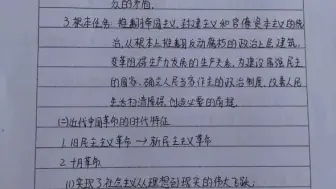 的矛盾
3.根本任务：推翻帝国主义、封建主义和官僚资本主义的统
治，从根本上推翻反动腐朽的政治上层建筑，
变革阻碍生产力发展的生产关系，为建设富强民主
的国家、确立人民当家作主的政治制度、改善人民
生活扫清障碍，创造必要的前提。
(二)近代中国革命的时代特征
1.旧民主主义革命→新民主主义革命
2.十月革命
(1)实现了社会主义从理想到现实的伟大飞跃;